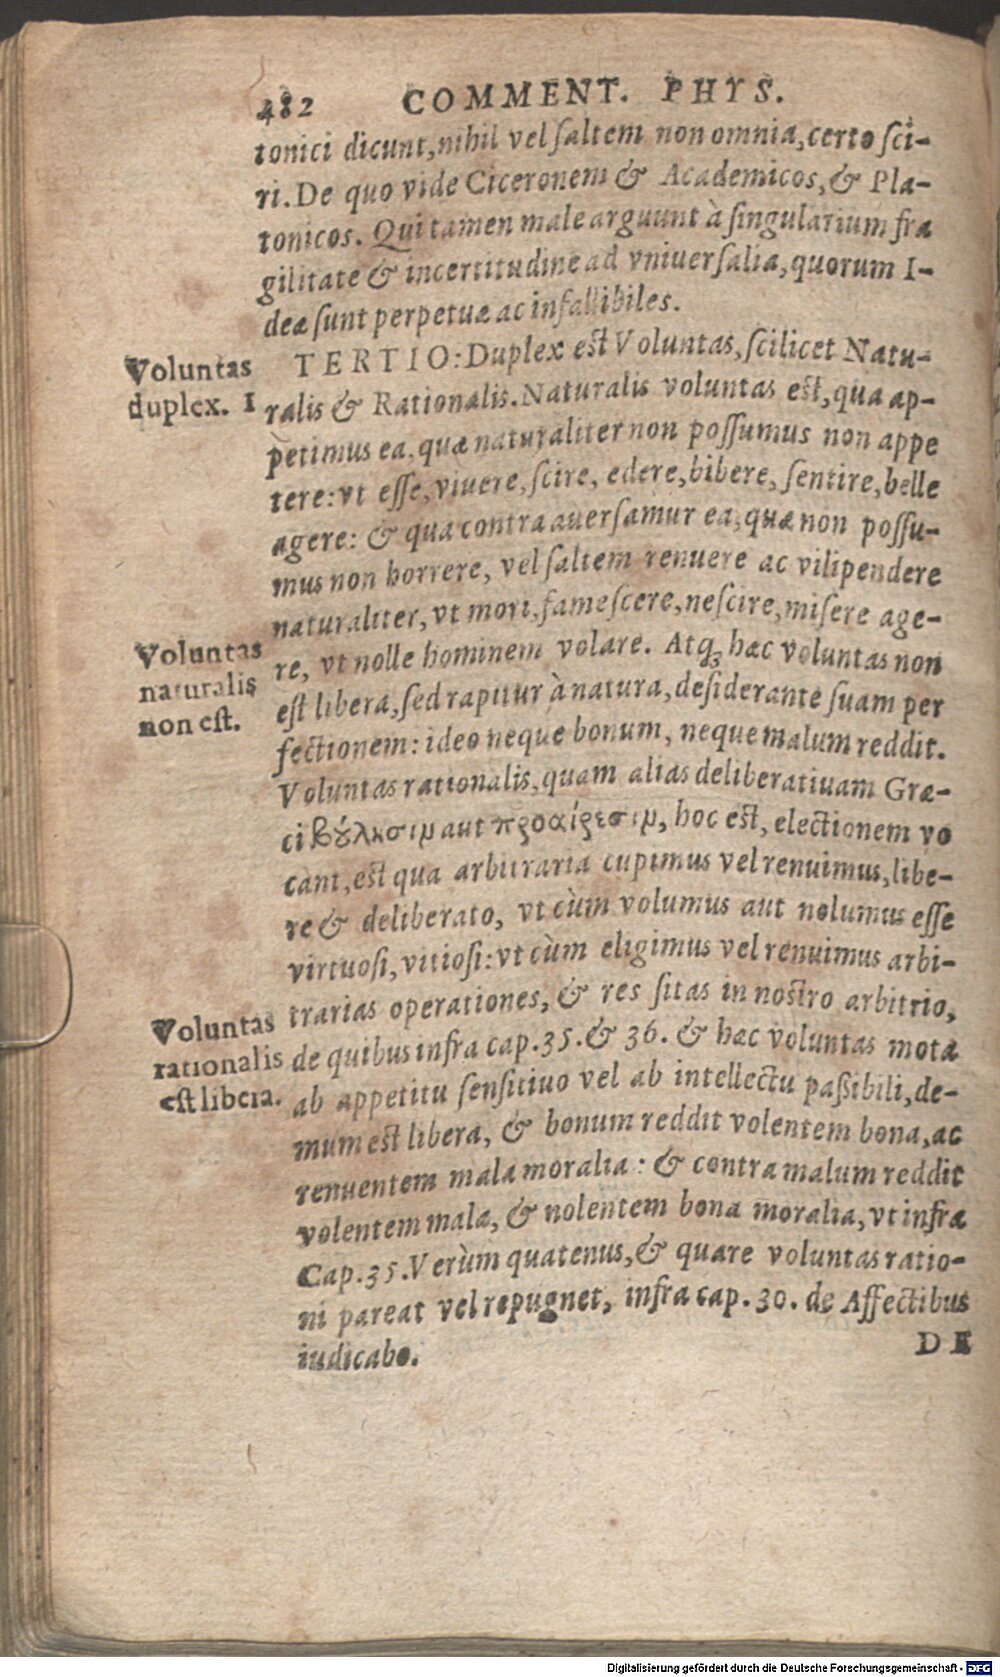 482 COMMENT. PHYS.
tonici dicunt, nihil vel saltem non omnia, certo sci-
ri. De quo vide Ciceronem & Academicos, & Pla-
tonicos. Qui tamen male arguunt à singularium fra
gilitate & incertitudine ad vniuersalia, quorum I-
deæ sunt perpetuæ ac infallibiles.
Voluntas
duplex. 1
TERTIO: Duplex est Voluntas, scilicet Natu-
ralis & Rationalis. Naturalis voluntas est, qua ap-
petimus ea, quæ naturaliter non possumus non appe
tere: vt esse, viuere, scire, edere, bibere, sentire, belle
agere: & qua contra auersamur ea, quæ non possu-
mus non horrere, vel saltem renuere ac vilipendere
naturaliter, vt mori, famescere, nescire, misere age-
Voluntas
naturalis
non est.
re, vt nolle hominem volare. Atq; hæc voluntas non
est libera, sed rapitur à natura, desiderante suam per
fectionem: ideo neque bonum, neque malum reddit.
Voluntas rationalis, quam alias deliberatiuam Græ-
ci βȣ́λησιμ aut προαίρεσιμ, hoc est, electionem vo
cant, est qua arbitraria cupimus vel renuimus, libe-
re & deliberato, vt cùm volumus aut nolumus esse
virtuosi, vitiosi: vt cùm eligimus vel renuimus arbi-
Voluntas
rationalis
est libera.
trarias operationes, & res sitas in nostro arbitrio,
de quibus infra cap. 35. & 36. & hæc voluntas mota
ab appetitu sensitiuo vel ab intellectu paßibili, de-
mum est libera, & bonum reddit volentem bona, ac
renuentem mala moralia: & contra malum reddit
volentem mala, & nolentem bona moralia, vt infra
Cap. 35. Verùm quatenus, & quare voluntas ratio-
ni pareat vel repugnet, infra cap. 30. de Affectibus
iudicabo.
DE
Digitalisierung gefördert durch die Deutsche Forschungsgemeinschaft - DFG